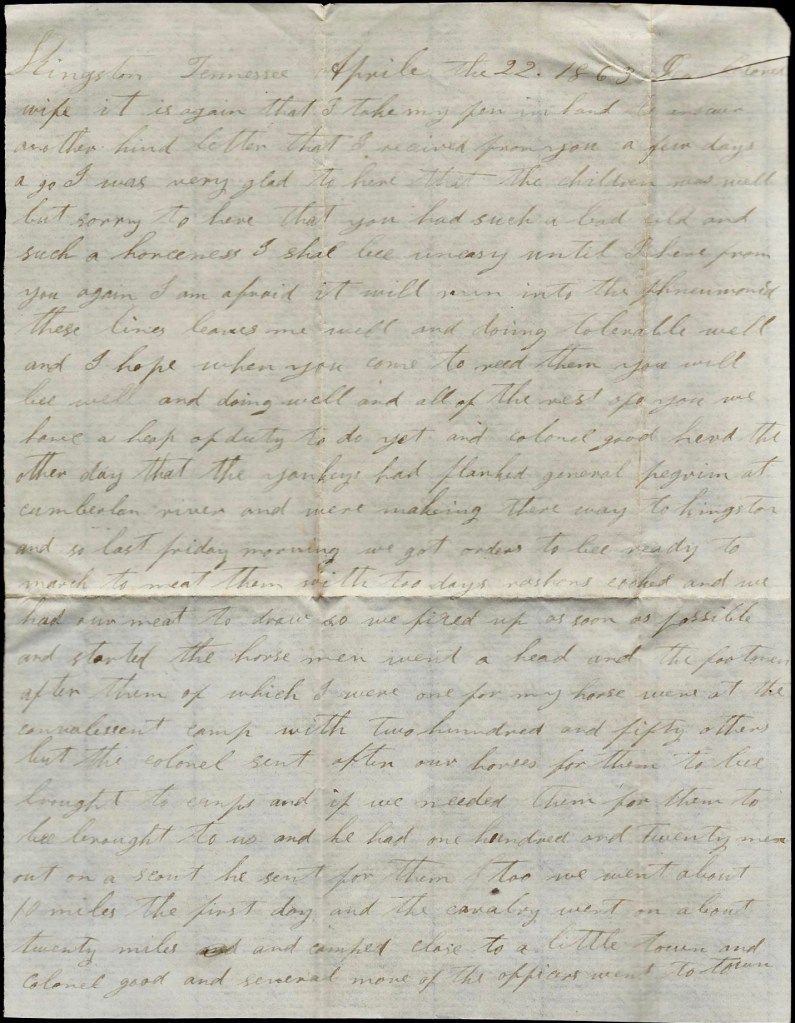 Kingston Tennessee Aprile the 22. 1863
wife it is again that I take my pen in hand to
another kind letter that I recived from you a few days
a go I was very glad to here that the children was well
but sorry to here that you had such a bad cold and
such a horceness I shal bee uneasy until I here from
you again I am afraid it will run into the
these lines leaves me well and doing tolerable well
and I hope when you come to reed them you will
bee well and doing well and all of the rest of you we
have a heap of duty to do yet and colonel good herd the
other day that the yankeys had flanked general pegrim at
cumberlon river and were making there way to kingston
and so last friday morning we got orders to bee ready to
march to meat them with too days rashens cooked and we
had our meat to draw so we fixed up as soon as possible
and started the horse men went a head and the foot men
after them of which I were one for my horse were at the
convalessent camp with two hundred and fifty others
but the colonel sent after our horses for them to bee
brought to camps and if we needed them for them to
bee brought to us and he had one hundred and twenty men
out on a scout he sent for them too we went about
10 miles the first day and the cavalry went on about
twenty miles and camped close to a little town and
colonel good and several more of the officers went to town